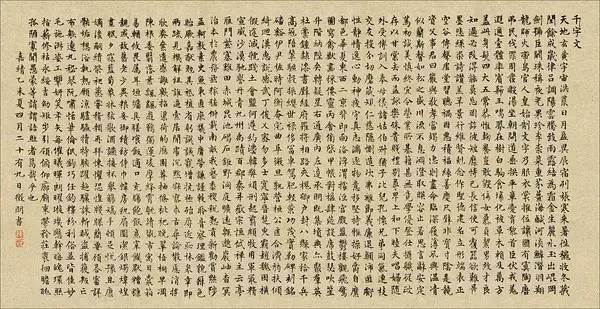 千字文
天地玄黃宇宙洪荒日月盈昃辰宿列張寒來暑往秋收冬藏
閏餘成歲律呂調陽雲騰致雨露結為霜金生麗水玉出崑岡
劍號巨闕珠稱夜光果珍李柰菜重芥薑海鹹河淡鱗潛羽翔
龍師火帝鳥官人皇始制文字乃服衣裳推位讓國有虞陶唐
弔民伐罪周發殷湯坐朝問道垂拱平章愛育黎首臣伏戎羌
遐邇壹體率賓歸王鳴鳳在樹白駒食場化被草木賴及萬方
蓋此身髮四大五常恭惟鞠養豈敢毀傷女慕貞絜男效才良
知過必改得能莫忘罔談彼短靡恃己長信使可覆器欲難量
墨悲絲染詩讚羔羊景行維賢克念作聖德建名立形端表正
空谷傳聲虛堂習聽禍因惡積福緣善慶尺璧非寶寸陰是競
資父事君曰嚴與敬孝當竭力忠則盡命臨深履薄夙興溫凊
似蘭斯馨如松之盛川流不息淵澄取映容止若思言辭安定
篤初誠美慎終宜令榮業所基籍甚無竟學優登仕攝職從政
存以甘棠去而益詠樂殊貴賤禮別尊卑上和下睦夫唱婦隨
外受傅訓入奉母儀諸姑伯叔猶子比兒孔懷兄弟同氣連枝
交友投分切磨箴規仁慈隱惻造次弗離節義廉退顛沛匪虧
性靜情逸心動神疲守真志滿逐物意移堅持雅操好爵自縻
都邑華夏東西二京背邙面洛浮渭據涇宮殿盤鬱樓觀飛驚
圖寫禽獸畫彩僊靈丙舍傍啟甲帳對楹肆筵設席鼓瑟吹笙
升階納陛弁轉疑星右通廣內左達承明既集墳典亦聚群英
杜稾鍾隸漆書壁經府羅將相路俠槐卿戶封八縣家給千兵
高冠陪輦驅轂振纓世祿侈富車駕肥輕策功茂實勒碑刻銘
磻溪伊尹佐時阿衡奄宅曲阜微旦孰營桓公匡合濟弱扶傾
綺迴漢惠說感武丁俊乂密勿多士寔寧晉楚更霸趙魏困橫
假途滅虢踐土會盟何遵約法韓弊煩刑起翦頗牧用軍最精
宣威沙漠馳譽丹青九州禹跡百郡秦并嶽宗恆岱禪主云亭
雁門紫塞雞田赤城昆池碣石鉅野洞庭曠遠綿邈巖岫杳冥
治本於農務茲稼穡俶載南畝我藝黍稷稅熟貢新勸賞黜陟
孟軻敦素史魚秉直庶幾中庸勞謙謹敕聆音察理鑒貌辨色
貽厥嘉猷勉其祗植省躬譏誡寵增抗極殆辱近恥林皋幸即
兩疏見機解組誰逼索居閒處沉默寂寥求古尋論散慮逍遙
欣奏累遣慼謝歡招渠荷的歷園莽抽條枇杷晚翠梧桐早凋
陳根委翳落葉飄颻遊鵾獨運凌摩絳霄耽讀翫市寓目囊箱
易輶攸畏屬耳垣牆具膳餐飯適口充腸飽飫烹宰飢厭糟糠
親戚故舊老少異糧妾御績紡侍巾帷房紈扇圓潔銀燭煒煌
晝眠夕寐藍筍象床絃歌酒讌接杯舉觴矯手頓足悅豫且康
嫡後嗣續祭祀烝嘗稽顙再拜悚懼恐惶牋牒簡要顧答審詳
骸垢想浴執熱願涼驢騾犢特駭躍超驤誅斬賊盜捕獲叛亡
布射遼丸嵇琴阮嘯恬筆倫紙鈞巧任釣釋紛利俗並皆佳妙
毛施淑姿工顰妍笑年矢每催羲暉朗曜璇璣懸斡晦魄環照
指薪修祜永綏吉劭矩步引領俯仰廊廟束帶矜莊徘徊瞻眺
孤陋寡聞愚蒙等誚謂語助者焉哉乎也
嘉靖乙未夏四月二十有九日徵明書